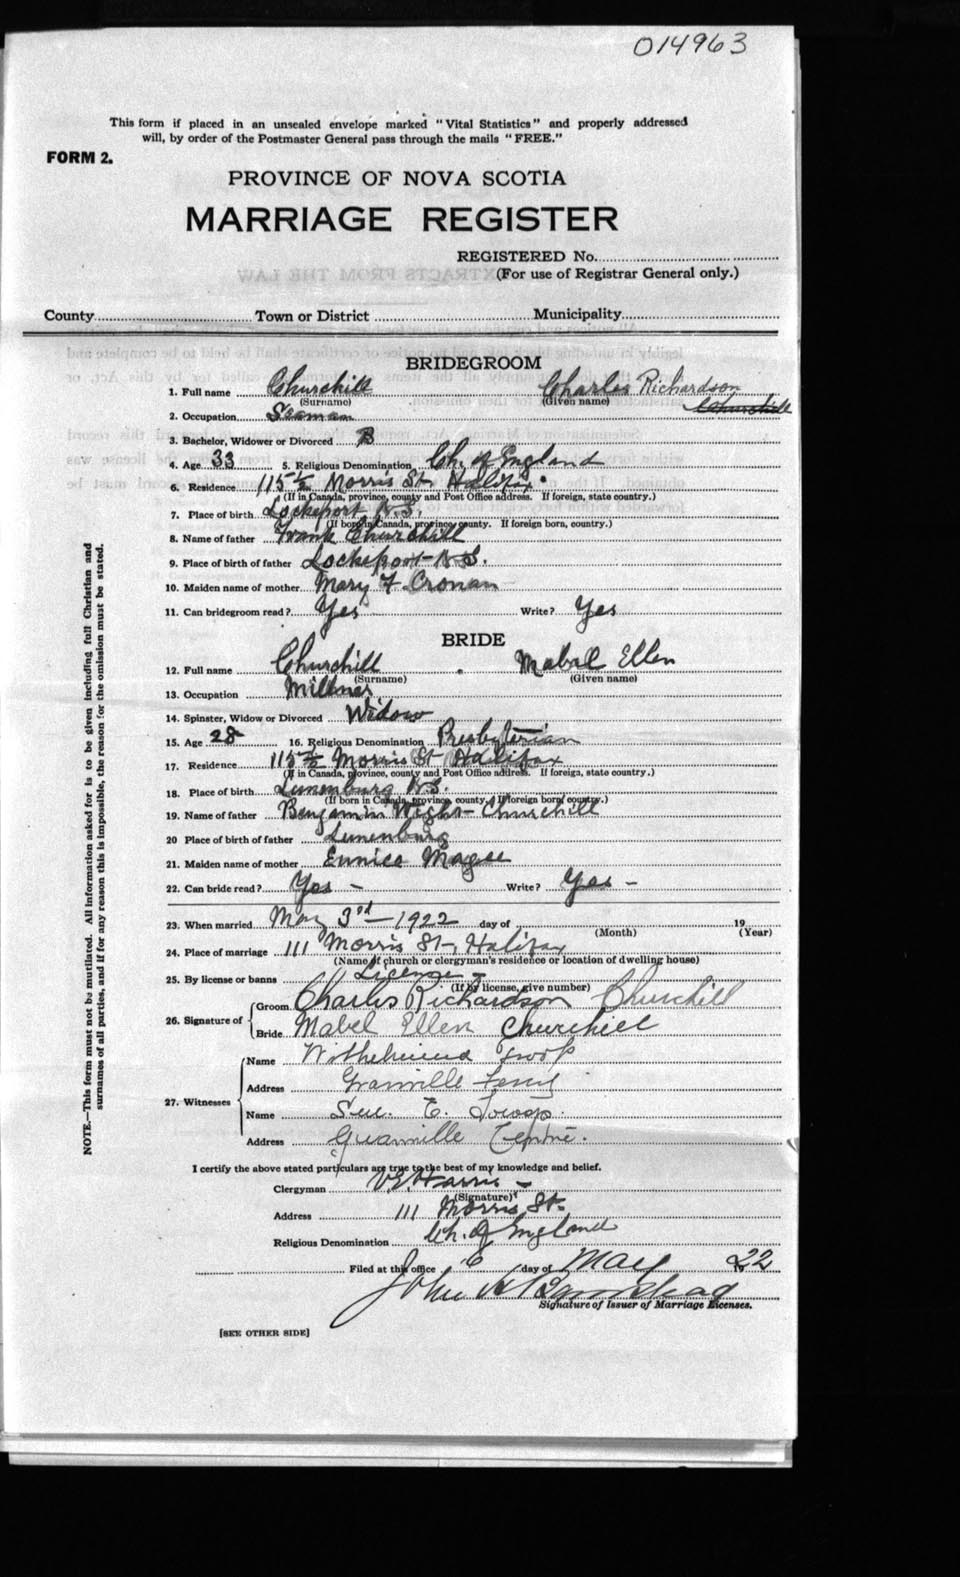 014963
This form if placed in an unsealed envelope marked "Vital Statistics" and properly addressed
will, by order of the Postmaster General pass through the mails "FREE."
FORM 2.
PROVINCE OF NOVA SCOTIA
MARRIAGE REGISTER
REGISTERED No.
(For use of Registrar General only.)
County Town or District Municipality
BRIDEGROOM
1. Full name Churchill Charles Richardson
(Surname) (Given name) Churchill
2. Occupation Seaman
3. Bachelor, Widower or Divorced B
4. Age 33 5. Religious Denomination Ch. of England
6. Residence 115 1/2 Morris St. Halifax
(If in Canada, province, county and Post Office address. If foreign, state country.)
7. Place of birth Lockeport N.S.
(If born in Canada, province, county. If foreign born, country.)
8. Name of father Frank Churchill
9. Place of birth of father Lockeport N.S.
10. Maiden name of mother Mary F Cronan
11. Can bridegroom read? Yes Write? Yes
BRIDE
12. Full name Churchill Mabal Ellen
(Surname) (Given name)
13. Occupation Millner
14. Spinster, Widow or Divorced Widow
15. Age 28 16. Religious Denomination Presbyterian
17. Residence 115 1/2 Morris St Halifax
(If in Canada, province, county and Post Office address. If foreign, state country.)
18. Place of birth Lunenburg N.S.
(If born in Canada, province, county. If foreign born country.)
19. Name of father Benjamin Churchill
20 Place of birth of father Lunenburg
21. Maiden name of mother Eunice Magee
22. Can bride read? Yes - Write? Yes -
23. When married May 3rd - 1922 day of 19
(Month) (Year)
24. Place of marriage 111 Morris St, Halifax
(Name of church or clergyman's residence or location of dwelling house)
25. By license or banns License -
(If by license, give number)
26. Signature of Groom Charles Richardson Churchill
Bride Mabel Ellen Churchill
27. Witnesses
Name
Address Granville Ferry
Name E.
Address Granville Centre.
I certify the above stated particulars are true to the best of my knowledge and belief.
Clergyman V.E. Harris -
(Signature)
Address 111 Morris St.
Religious Denomination Ch. of England
Filed at this office 6 day of May 1922
John
Signature of Issuer of Marriage Licenses.
[SEE OTHER SIDE]
NOTE.—This form must not be mutilated. All information asked for is to be given including full Christian and
surnames of all parties, and if for any reason this is impossible, the reason for the omission must be stated.